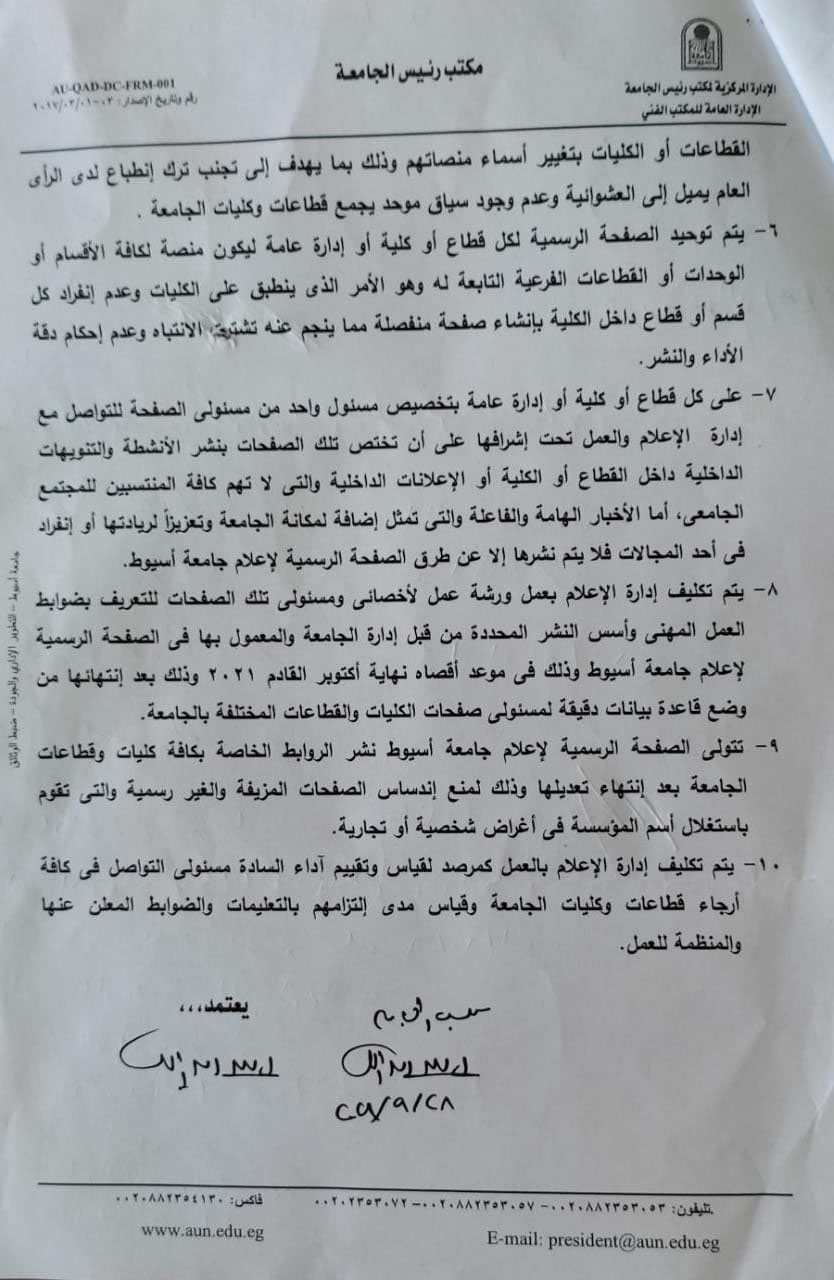 مكتب رئيس الجامعة
الإدارة المركزية لمكتب رئيس الجامعة
الإدارة العامة للمكتب الفني
AU-QAD-DC-FRM-001
رقم وتاريخ الإصدار: ٠٣-٢٠١٧/٠٣/٠١
القطاعات أو الكليات بتغيير أسماء منصاتهم وذلك بما يهدف إلى تجنب ترك إنطباع لدى الرأى
العام يميل إلى العشوائية وعدم وجود سياق موحد يجمع قطاعات وكليات الجامعة .
٦- يتم توحيد الصفحة الرسمية لكل قطاع أو كلية أو إدارة عامة ليكون منصة لكافة الأقسام أو
الوحدات أو القطاعات الفرعية التابعة له وهو الأمر الذى ينطبق على الكليات وعدم إنفراد كل
قسم أو قطاع داخل الكلية بإنشاء صفحة منفصلة مما ينجم عنه الانتباه وعدم إحكام دقة
الأداء والنشر.
٧- على كل قطاع أو كلية أو إدارة عامة بتخصيص مسئول واحد من مسئولى الصفحة للتواصل مع
إدارة الإعلام والعمل تحت إشرافها على أن تختص تلك الصفحات بنشر الأنشطة والتنويهات
الداخلية داخل القطاع أو الكلية أو الإعلانات الداخلية والتى لا تهم كافة المنتسبين للمجتمع
الجامعى، أما الأخبار الهامة والفاعلة والتى تمثل إضافة لمكانة الجامعة وتعزيزاً لريادتها أو إنفراد
فى أحد المجالات فلا يتم نشرها إلا عن طرق الصفحة الرسمية لإعلام جامعة أسيوط.
٨- يتم تكليف إدارة الإعلام بعمل ورشة عمل لأخصائى ومسئولى تلك الصفحات للتعريف بضوابط
العمل المهنى وأسس النشر المحددة من قبل إدارة الجامعة والمعمول بها فى الصفحة الرسمية
لإعلام جامعة أسيوط وذلك فى موعد أقصاه نهاية أكتوبر القادم ٢٠٢١ وذلك بعد إنتهائها من
وضع قاعدة بيانات دقيقة لمسئولى صفحات الكليات والقطاعات المختلفة بالجامعة.
٩- تتولى الصفحة الرسمية لإعلام جامعة أسيوط نشر الروابط الخاصة بكافة كليات وقطاعات
الجامعة بعد إنتهاء تعديلها وذلك لمنع إندساس الصفحات المزيفة والغير رسمية والتى تقوم
باستغلال أسم المؤسسة فى أغراض شخصية أو تجارية.
١٠- يتم تكليف إدارة الإعلام بالعمل كمرصد لقياس وتقييم آداء السادة مسئولى التواصل فى كافة
أرجاء قطاعات وكليات الجامعة وقياس مدى إلتزامهم بالتعليمات والضوابط المعلن عنها
والمنظمة للعمل.
يعتمد،،،
جامعة أسيوط – التطوير الإداري والجودة – ضبط الوثائق
تليفون: ٠٠٢٠٨٨٢٣٥٣٠٥٣ - ٠٠٢٠٨٨٢٣٥٣٠٥٧ - ٠٠٢٠٢٣٥٣٠٧٢ فاكس: ٠٠٢٠٨٨٢٣٥٤١٣٠
E-mail: president@aun.edu.eg www.aun.edu.eg